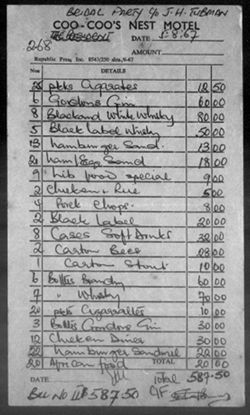 BRIDAL PARTY C/o J. H. TUBMAN
COO-COO'S NEST MOTEL
DATE 1-8-67
268
AMOUNT
Republic Press, Inc. 8543/250 shts.,9-67
Nos DETAILS
pkts Cigarates 12 50
6 Gordons Gin 60 00
8 Black and White Whisky 80 00
5 Black Label Whisky 50 00
13 hamburger Sand 13 00
ham/egg Sand 18 00
9 Lib food special 9 00
2 Chicken & Rice 5 00
4 Pork Chops 8 00
2 Black Label 20 00
8 Cases Soft drinks 32 00
2 Carton Beer 00
1 Carton Stout 10 00
6 Bottles Brandy 60 00
7 " Whisky 70 00
20 pkts Cigarates 10 00
3 Bottles Gordons Gin 30 00
12 Chicken Dinner 30 00
22 hamburger Sandwich 22 00
20 African food TOTAL 20 00
DATE Total 587-50
Bill No $587-50